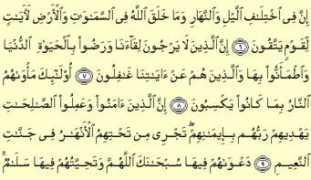 إِنَّ فِى ٱخْتِلَٰفِ ٱلَّيْلِ وَٱلنَّهَارِ وَمَا خَلَقَ ٱللَّهُ فِى ٱلسَّمَٰوَٰتِ وَٱلْأَرْضِ لَءَايَٰتٍ
لِّقَوْمٍ يَتَّقُونَ ٦ إِنَّ ٱلَّذِينَ لَا يَرْجُونَ لِقَآءَنَا وَرَضُوا۟ بِٱلْحَيَوٰةِ ٱلدُّنْيَا
وَٱطْمَأَنُّوا۟ بِهَا وَٱلَّذِينَ هُمْ عَنْ ءَايَٰتِنَا غَٰفِلُونَ ٧ أُو۟لَٰٓئِكَ مَأْوَىٰهُمُ
ٱلنَّارُ بِمَا كَانُوا۟ يَكْسِبُونَ ٨ إِنَّ ٱلَّذِينَ ءَامَنُوا۟ وَعَمِلُوا۟ ٱلصَّٰلِحَٰتِ
يَهْدِيهِمْ رَبُّهُم بِإِيمَٰنِهِمْ ۖ تَجْرِى مِن تَحْتِهِمُ ٱلْأَنْهَٰرُ فِى جَنَّٰتِ
ٱلنَّعِيمِ ٩ دَعْوَىٰهُمْ فِيهَا سُبْحَٰنَكَ ٱللَّهُمَّ وَتَحِيَّتُهُمْ فِيهَا سَلَٰمٌ ۚ